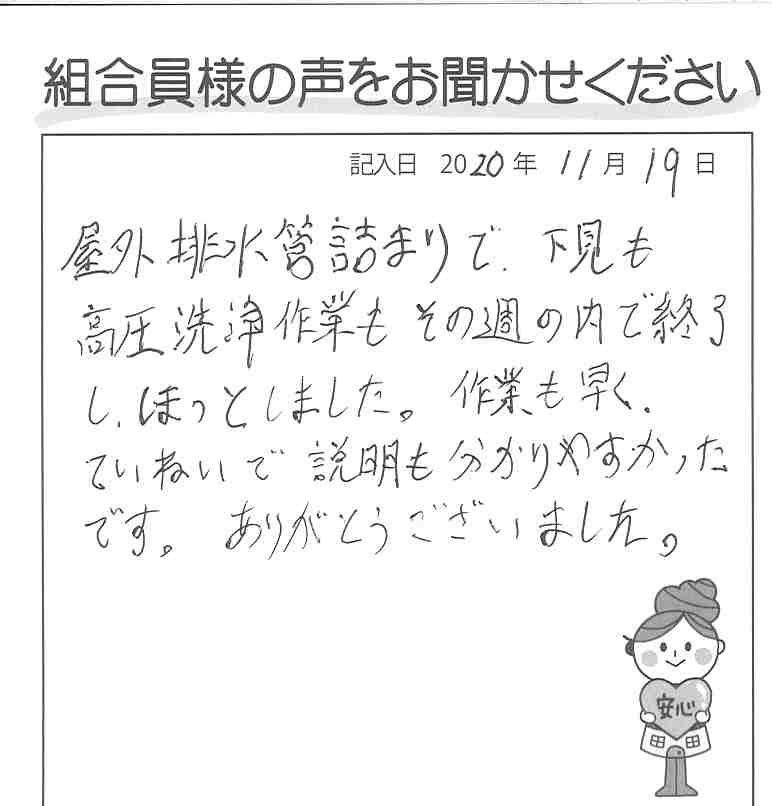 組合員様の声をお聞かせください
記入日 2020年 11月 19日
屋外排水管詰まりで、下見も
高圧洗浄作業もその週の内で終了
し、ほっとしました。作業も早く、
ていねいで説明も分かりやすかった
です。ありがとうございました。
安心